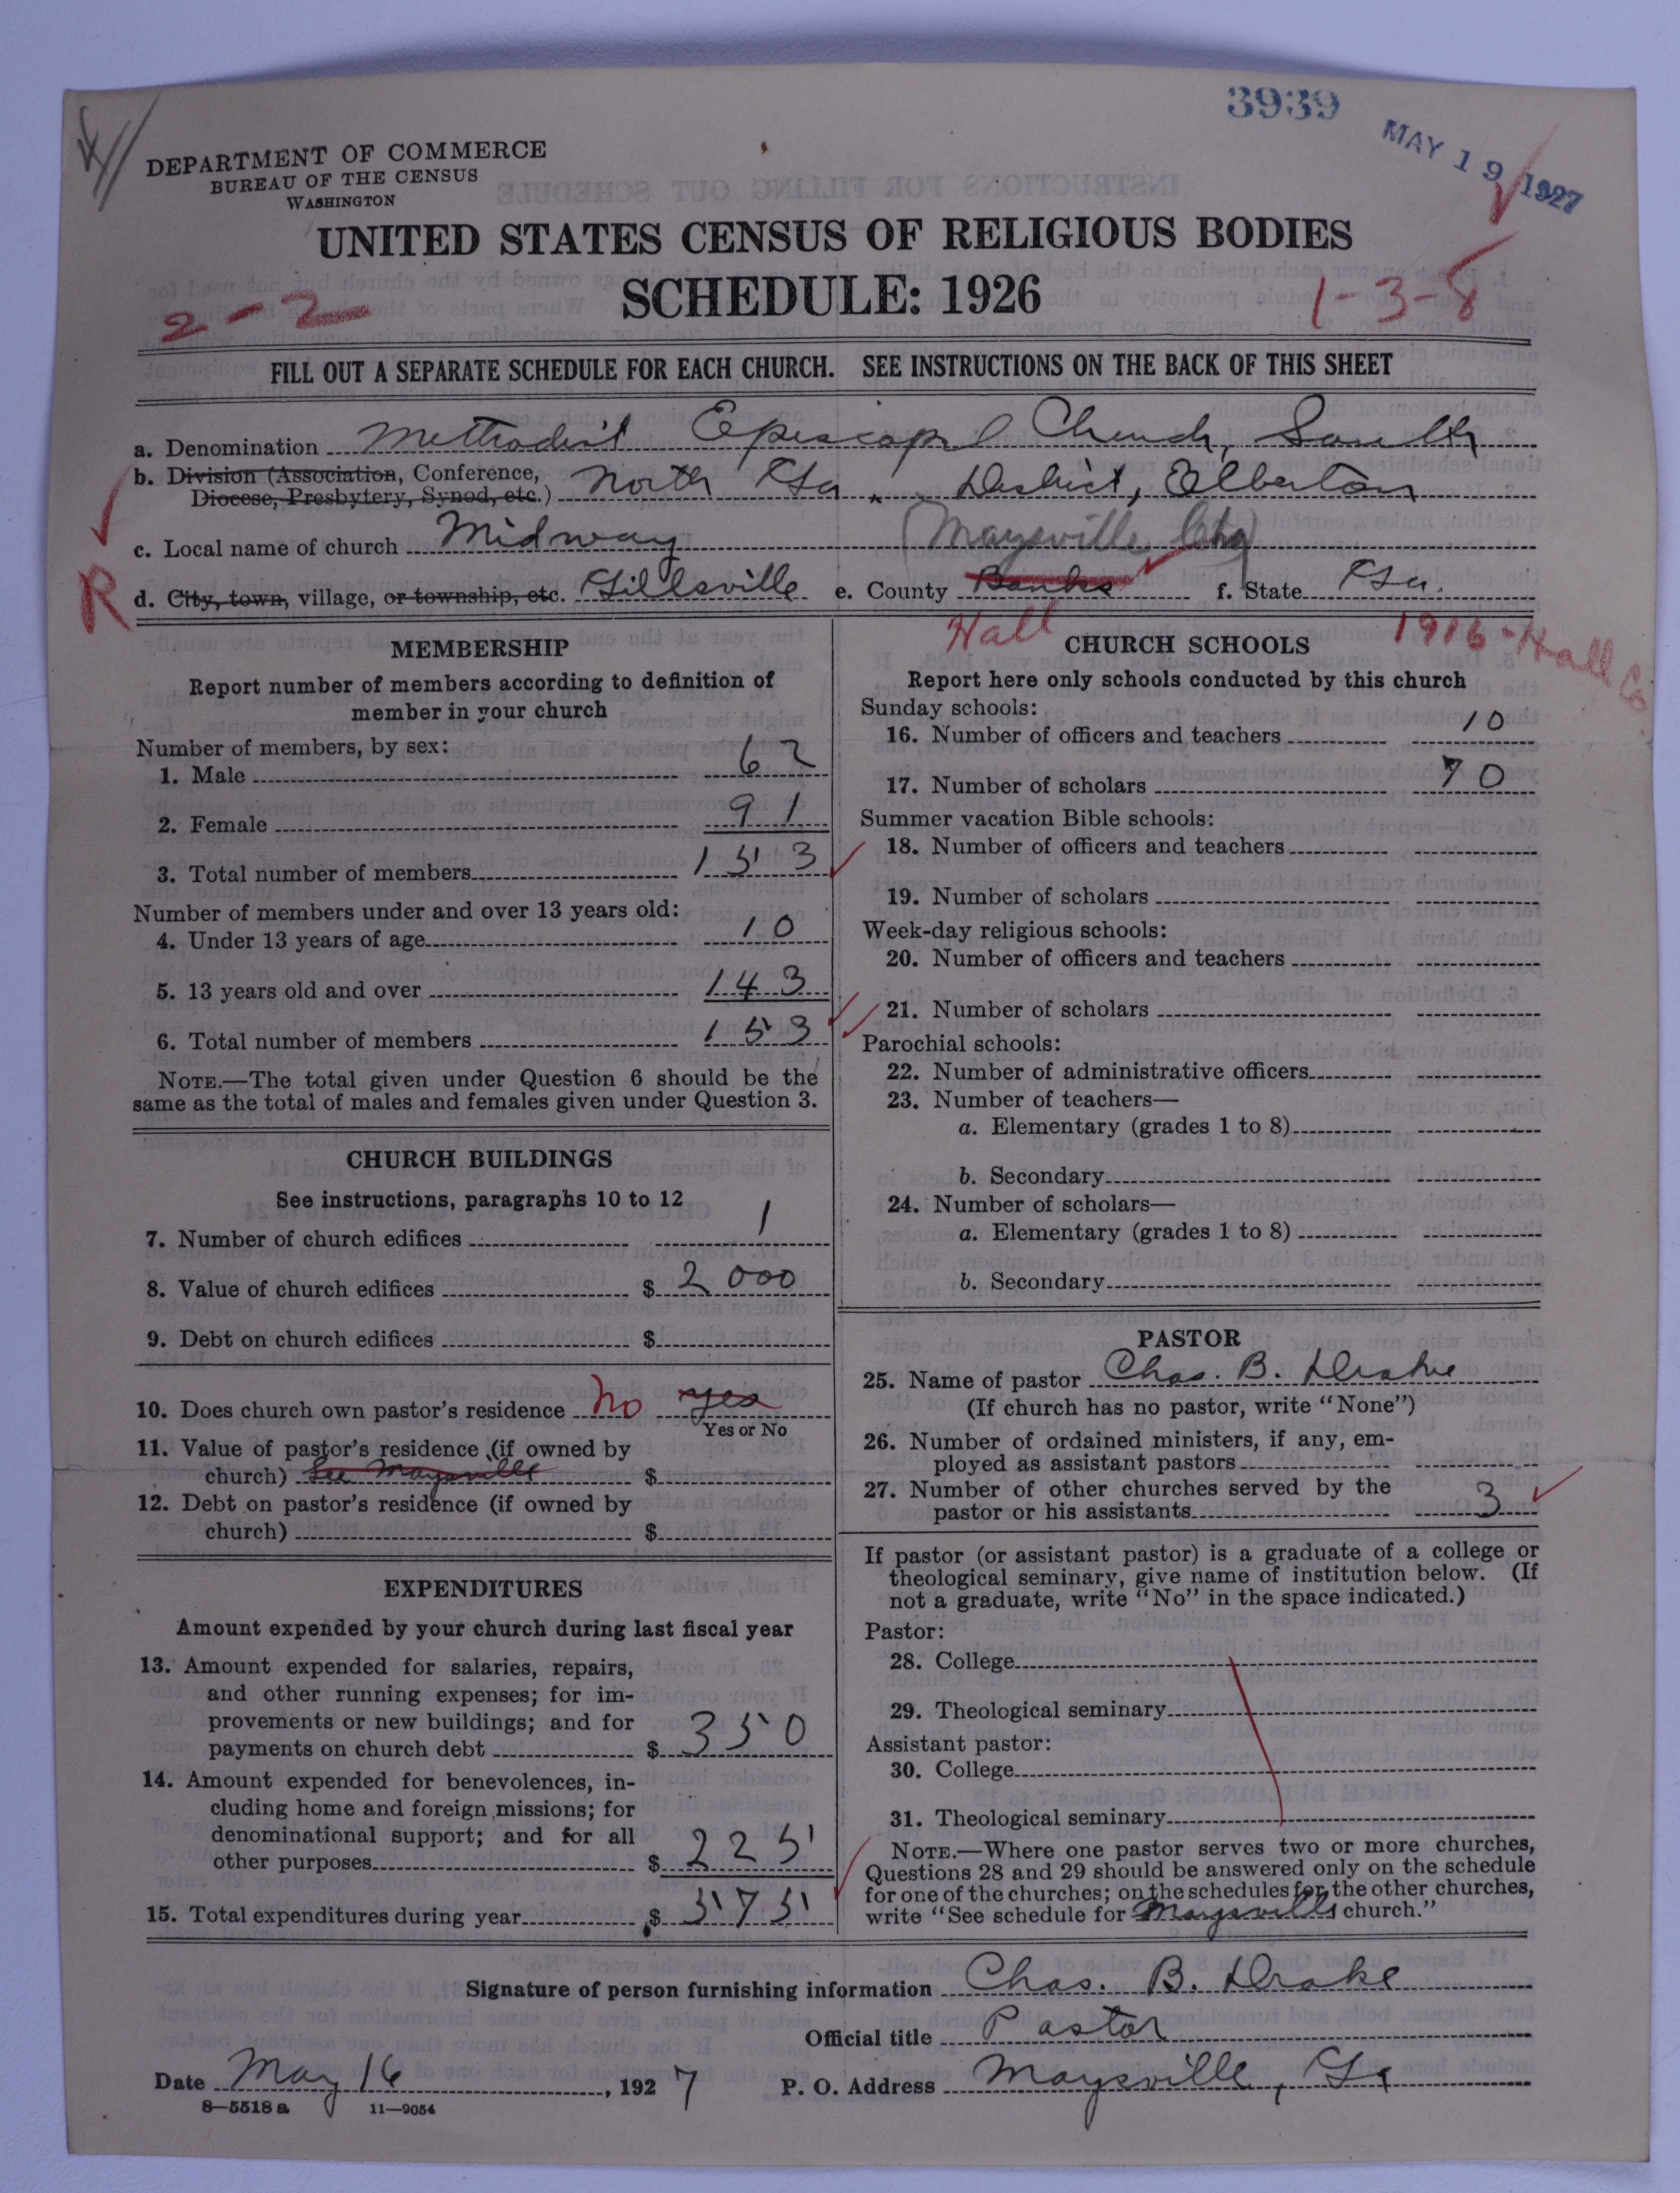 3939
MAY 19 1927
DEPARTMENT OF COMMERCE
BUREAU OF THE CENSUS
WASHINGTON
UNITED STATES CENSUS OF RELIGIOUS BODIES
SCHEDULE: 1926
2-2
1-3-8
FILL OUT A SEPARATE SCHEDULE FOR EACH CHURCH. SEE INSTRUCTIONS ON THE BACK OF THIS SHEET
a. Denomination Methodist Episcopal Church, South
b. Division (Association, Conference,
Diocese, Presbytery, Synod, etc.) North Ga. District, Elberton
c. Local name of church Midway (Maysville Chg)
R d. City, town, village, or township, etc. Gillsville e. County Banks f. State Ga.
Hall
1916-Hall Co
MEMBERSHIP
Report number of members according to definition of
member in your church
Number of members, by sex:
1. Male 62
2. Female 91
3. Total number of members 153
Number of members under and over 13 years old:
4. Under 13 years of age 10
5. 13 years old and over 143
6. Total number of members 153
NOTE.—The total given under Question 6 should be the
same as the total of males and females given under Question 3.
CHURCH BUILDINGS
See instructions, paragraphs 10 to 12
7. Number of church edifices 1
8. Value of church edifices $ 2000
9. Debt on church edifices $
10. Does church own pastor's residence No yes
Yes or No
11. Value of pastor's residence (if owned by
church) See Maysville $
12. Debt on pastor's residence (if owned by
church) $
EXPENDITURES
Amount expended by your church during last fiscal year
13. Amount expended for salaries, repairs,
and other running expenses; for im-
provements or new buildings; and for
payments on church debt $ 350
14. Amount expended for benevolences, in-
cluding home and foreign missions; for
denominational support; and for all
other purposes $ 225
15. Total expenditures during year $ 575
CHURCH SCHOOLS
Report here only schools conducted by this church
Sunday schools:
16. Number of officers and teachers 10
17. Number of scholars 70
Summer vacation Bible schools:
18. Number of officers and teachers
19. Number of scholars
Week-day religious schools:
20. Number of officers and teachers
21. Number of scholars
Parochial schools:
22. Number of administrative officers
23. Number of teachers—
a. Elementary (grades 1 to 8)
b. Secondary
24. Number of scholars—
a. Elementary (grades 1 to 8)
b. Secondary
PASTOR
25. Name of pastor Chas. B. Drake
(If church has no pastor, write "None")
26. Number of ordained ministers, if any, em-
ployed as assistant pastors
27. Number of other churches served by the
pastor or his assistants 3
If pastor (or assistant pastor) is a graduate of a college or
theological seminary, give name of institution below. (If
not a graduate, write "No" in the space indicated.)
Pastor:
28. College
29. Theological seminary
Assistant pastor:
30. College
31. Theological seminary
NOTE.—Where one pastor serves two or more churches,
Questions 28 and 29 should be answered only on the schedule
for one of the churches; on the schedules for the other churches,
write "See schedule for Maysville church."
Signature of person furnishing information Chas. B. Drake
Official title Pastor
Date May 16, 1927 P. O. Address Maysville, Ga
8—5518 a 11—9054